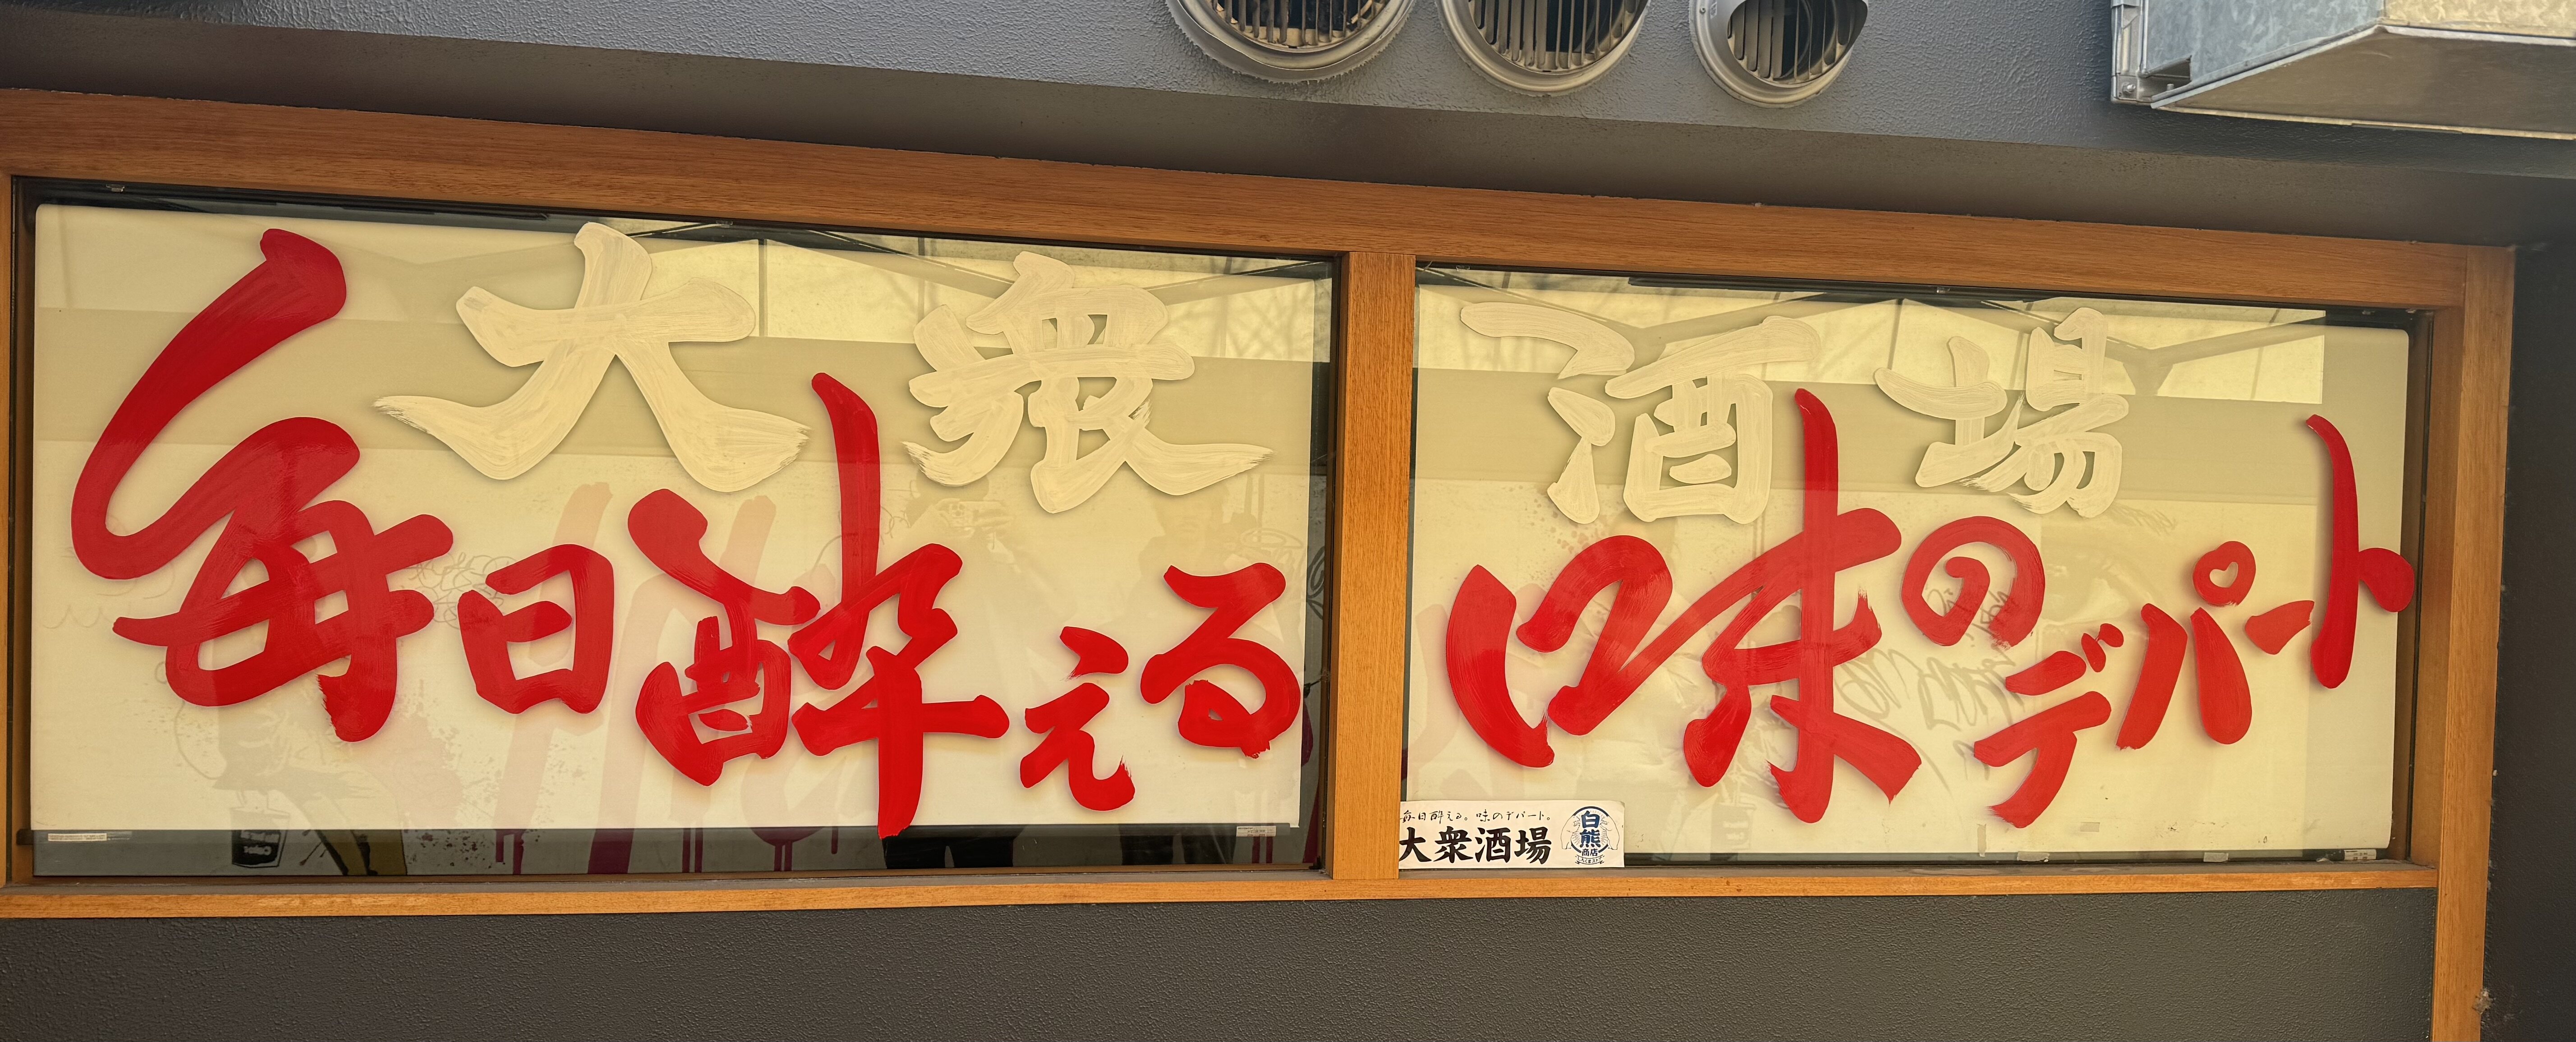 大衆酒場
毎日酔える味のデパート
毎日酔える。味のデパート。
大衆酒場
白熊
商店